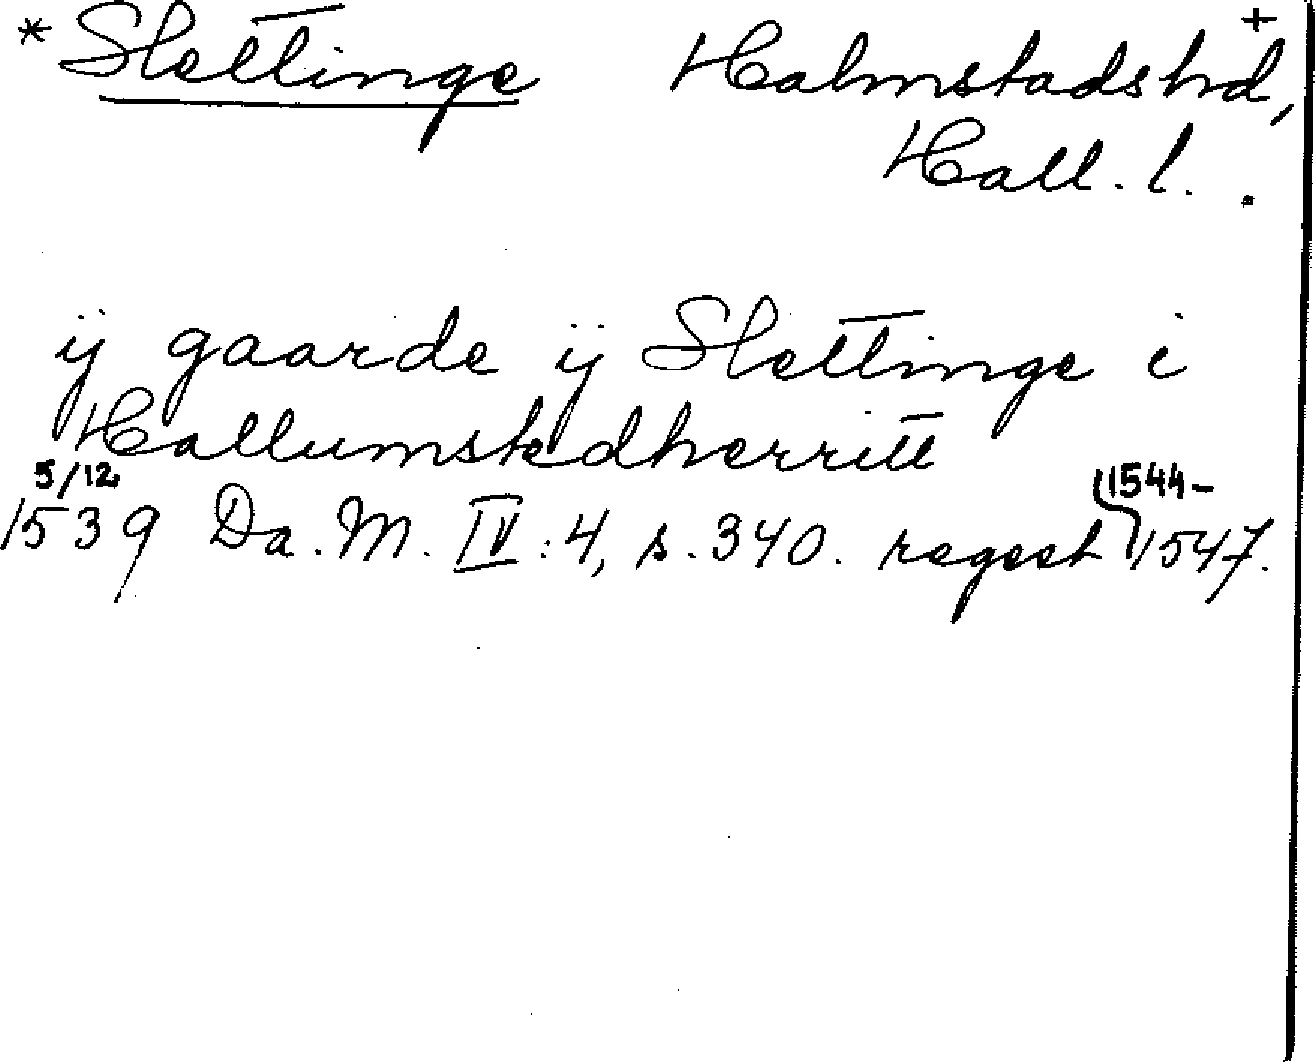 * Slettinge Halmstadshd, +
Hall. l. .
ij gaarde ij Slettinge i
Hallumstedherritt
5/12
1539 Da. M. IV: 4, s. 340. regest 1544-1547.